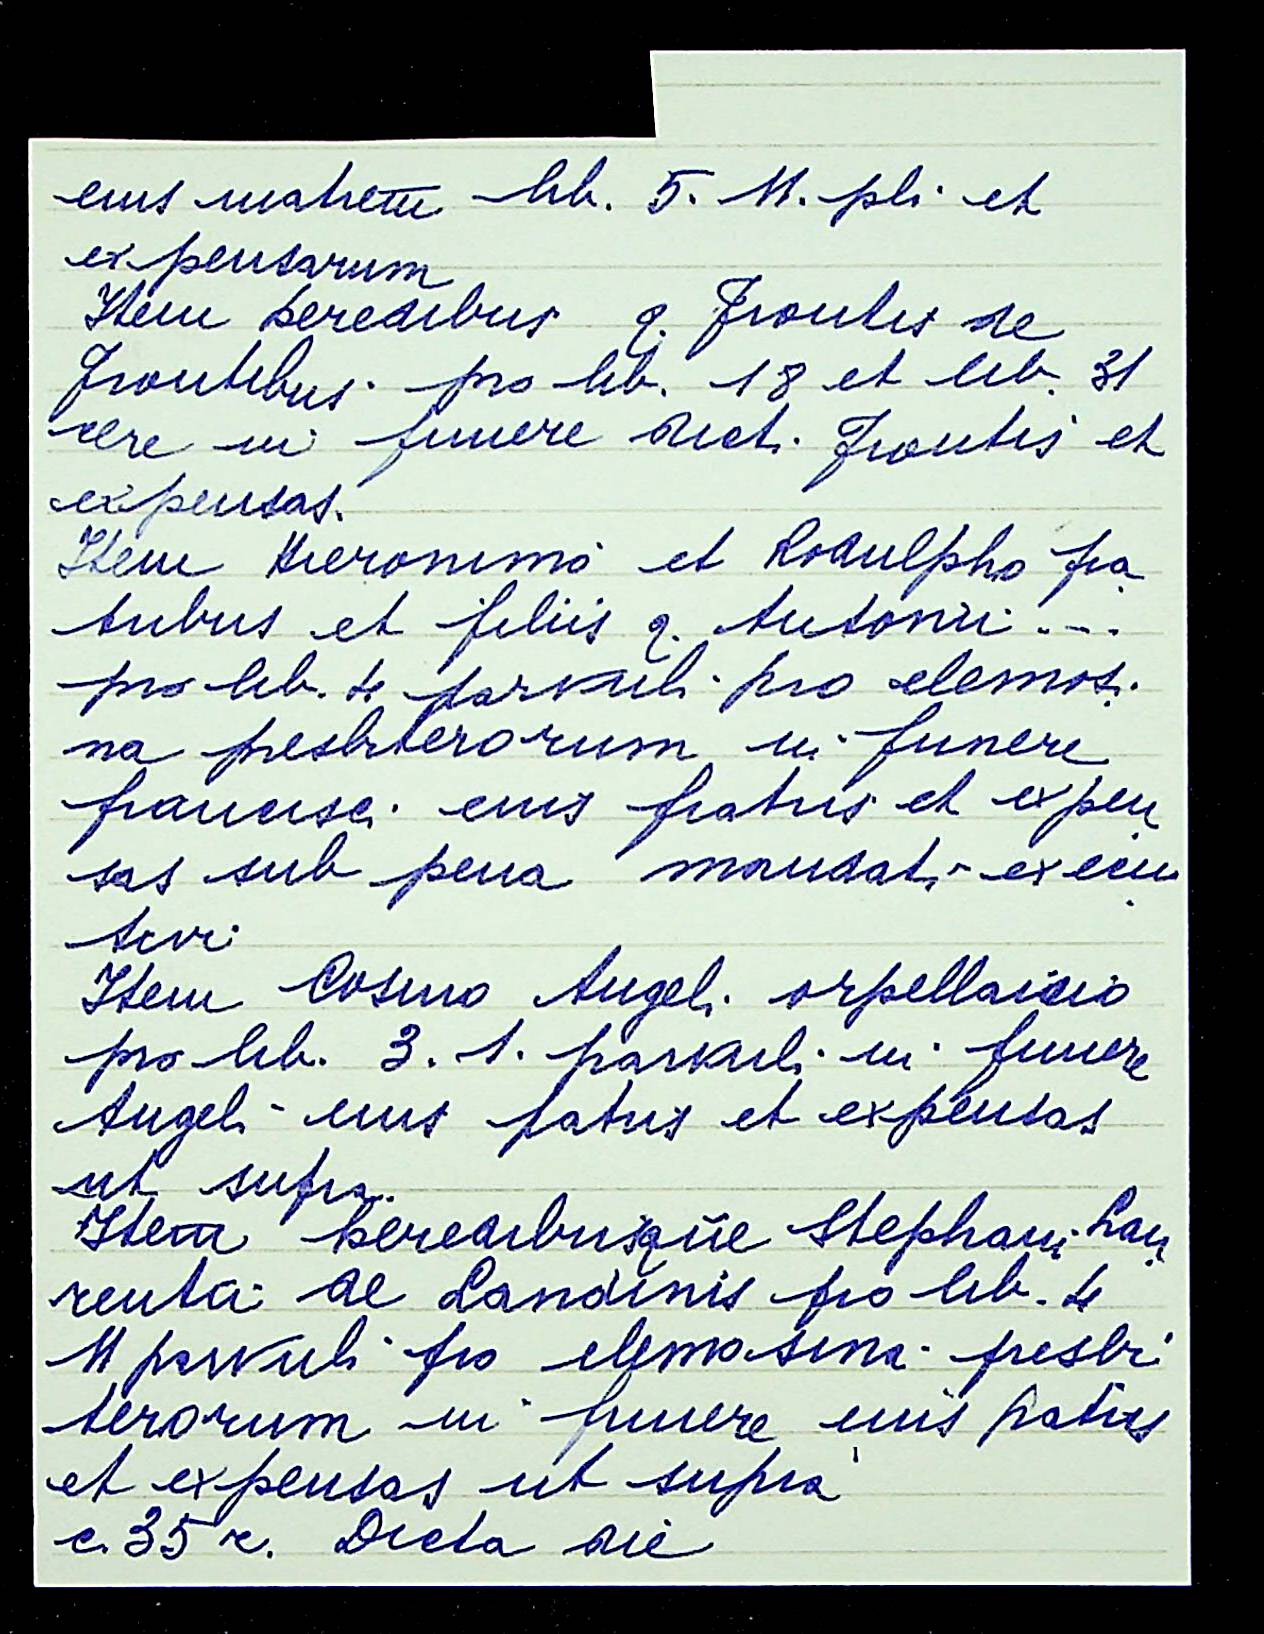 eius matrem lib. 5. M. pli et
expensarum
Item heredibus q. Frontis de
Frontibus. pro lib. 18 et lib. 31
cere in funere dicti Frontis et
expensas.
Item Hieronimo et Rodulpho fra
tribus et filiis q. Antonii ....
pro lib. 4 parvuli pro elemosi
na presbiterorum in funere
francisci eius fratris et expen
sas sub pena mandati execu
tivi
Item Cosmo Angeli orpellaio
pro lib. 3. 1. parvuli in funere
Angeli eius patris et expensas
ut supra.
Item heredibus que Stephani Lau
rentii de Landinis pro lib. 4
M parvuli pro elemosina presbi
terorum in funere eius fratris
et expensas ut supra
c. 35 r. Dicta die